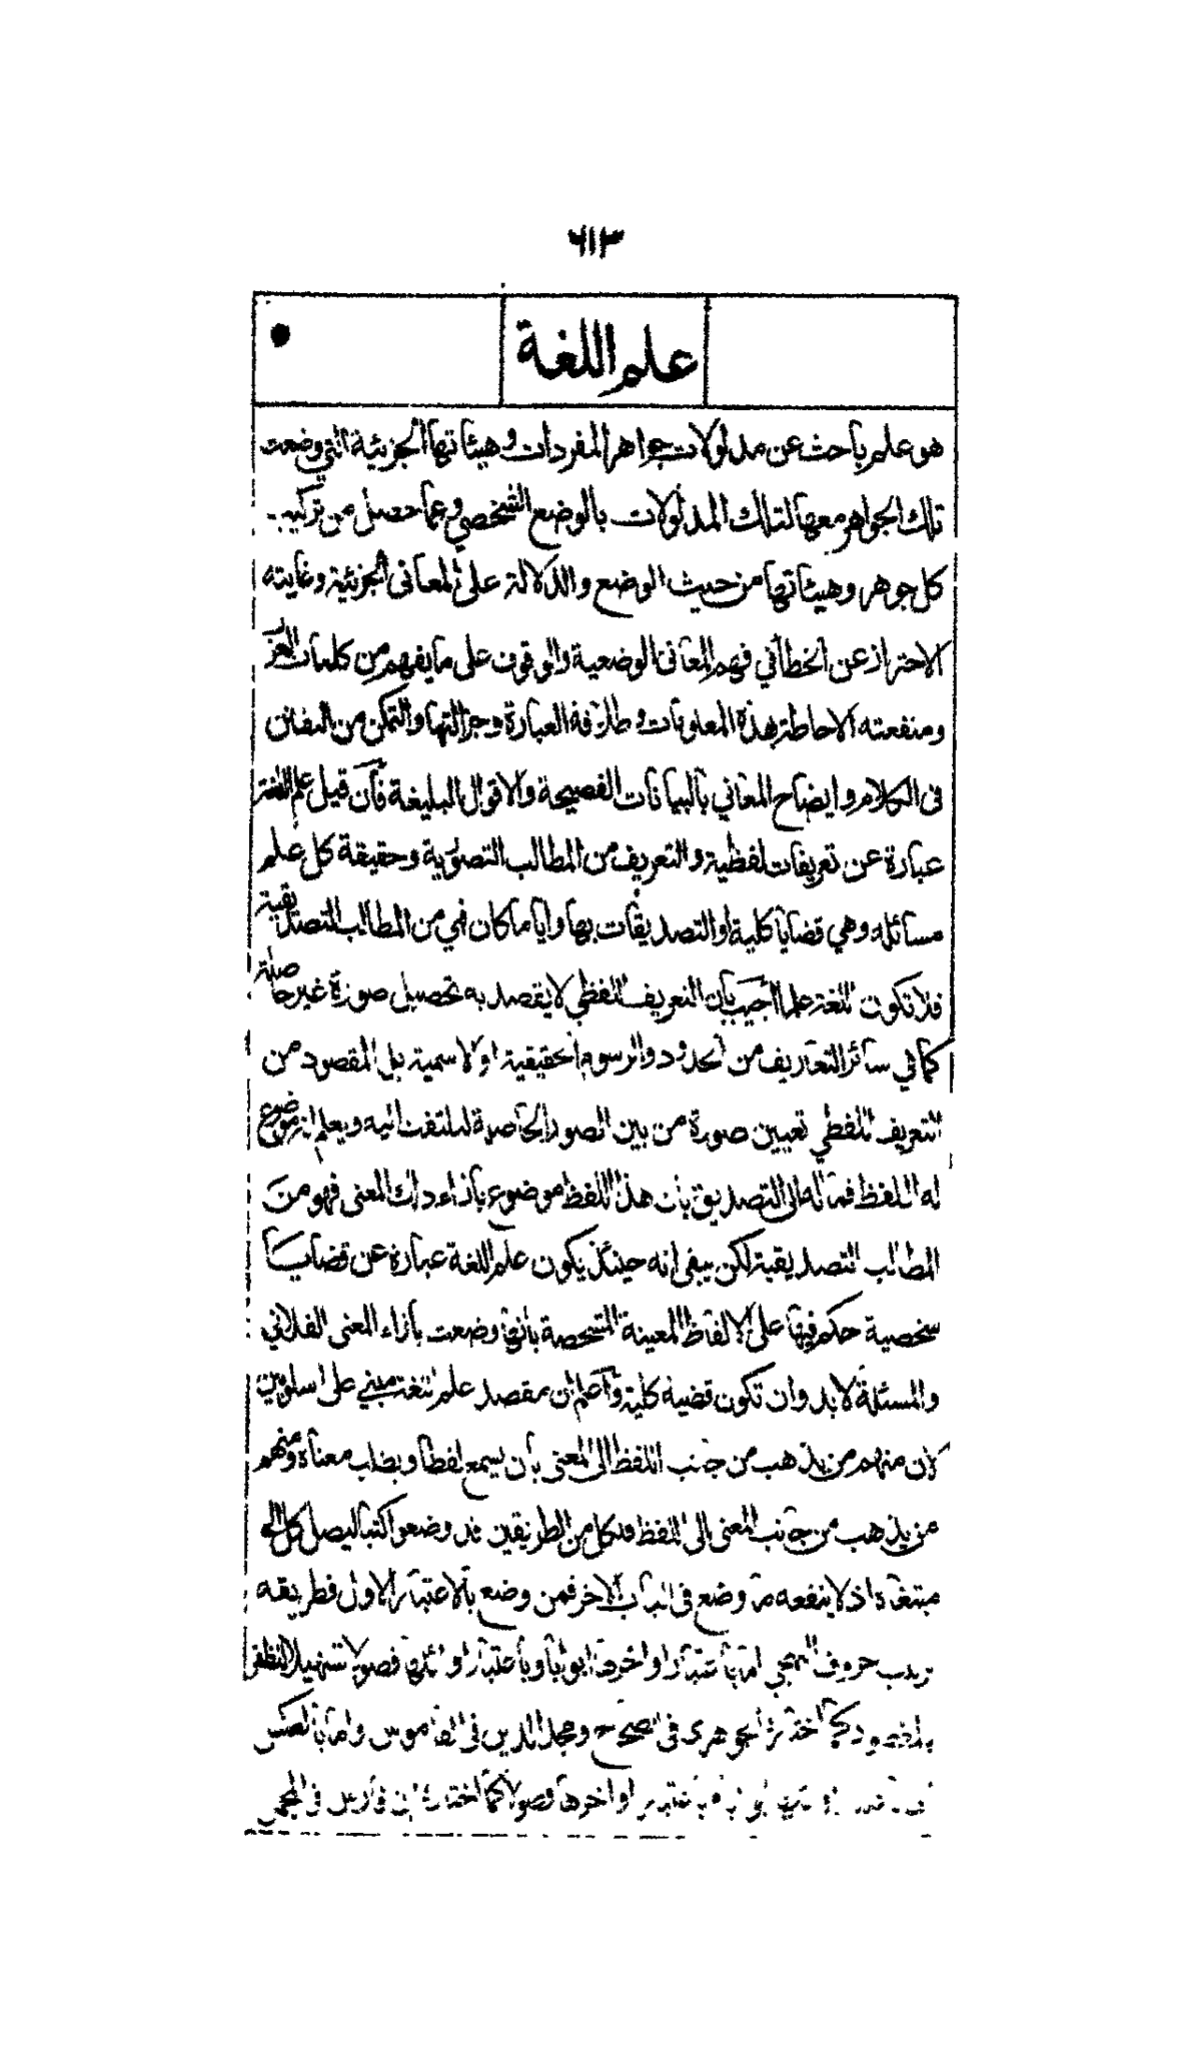 ٦١٣
علم اللغة
هو علم باحث عن مدلولات جواهر المفردات وهيئاتها الجزئية التي وضعت
تلك الجواهر معها لتلك المدلولات بالوضع الشخصي وعما حصل من تركيب
كل جوهر وهيئاتها من حيث الوضع والدلالة على المعاني الجزئية وغايته
الاحتراز عن الخطأ في فهم المعاني الوضعية والوقوف على ما يفهم من كلمات العرب
ومنفعته الاحاطة بهذه المعلومات وطلاقة العبارة وجزالتها والتمكن من التفنن
في الكلام وايضاح المعاني بالبيانات الفصيحة والاقوال البليغة فان قيل علم اللغة
عبارة عن تعريفات لفظية والتعريف من المطالب التصورية وحقيقة كل علم
مسائله وهي قضايا كلية او التصديقات بها وايا ما كان فهي من المطالب التصديقية
فلا تكون اللغة علما اجيب بان التعريف اللفظي لا يقصد به تحصيل صورة غير حاصلة
كما في سائر التعاريف من الحدود والرسوم الحقيقية او الاسمية بل المقصود من
التعريف اللفظي تعيين صورة من بين الصور الحاصلة ليلتفت اليه ويعلم انه موضوع
له اللفظ فمآله الى التصديق بان هذا اللفظ موضوع بازاء ذلك المعنى فهو من
المطالب التصديقية لكن يبقى انه حينئذ يكون علم اللغة عبارة عن قضايا
شخصية حكم فيها على الالفاظ المعينة المشخصة بانها وضعت بازاء المعنى الفلاني
والمسئلة لا بد وان تكون قضية كلية واعلم ان مقصد علم اللغة مبني على اسلوبين
لان منهم من يذهب من جانب اللفظ الى المعنى بان يسمع لفظا ويطلب معناه ومنهم
من يذهب من جانب المعنى الى اللفظ فلكل من الطريقين قد وضعوا كتبا ليصل كل الى
مبتغاه اذ لا ينفعه ما وضع في الباب الاخر فمن وضع بالاعتبار الاول فطريقه
ترتيب حروف التهجي اما باعتبار اواخرها ابوابا وباعتبار اوائلها فصولا تسهيلا للظفر
بالمقصود كما اختاره الجوهري في الصحاح ومجد الدين في القاموس واما بالعكس
اي باعتبار اوائلها ابوابا وباعتبار اواخرها فصولا كما اختاره ابن فارس في المجمل